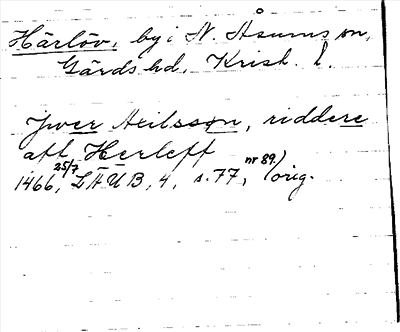 Härlöv, by i N. Åsums sn,
Gärds hd, Krist. l.
Jwer Axilsson, riddere
aff Herleff
1466 25/7, LÄUB, 4, s. 77, nr 89.) orig.